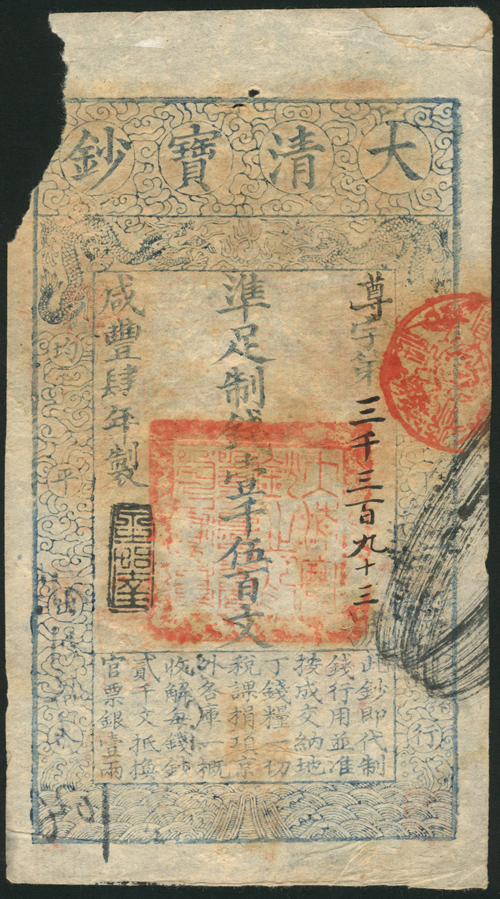 大清寶鈔
尊字第三千三百九十三
準足制錢壹千伍百文
咸豐肆年製
行
均平出
此鈔即代制
錢行用並准
按成交納地
丁錢糧一切
稅課捐項京
外各庫一概
收解每錢鈔
貳千文抵換
官票銀壹兩